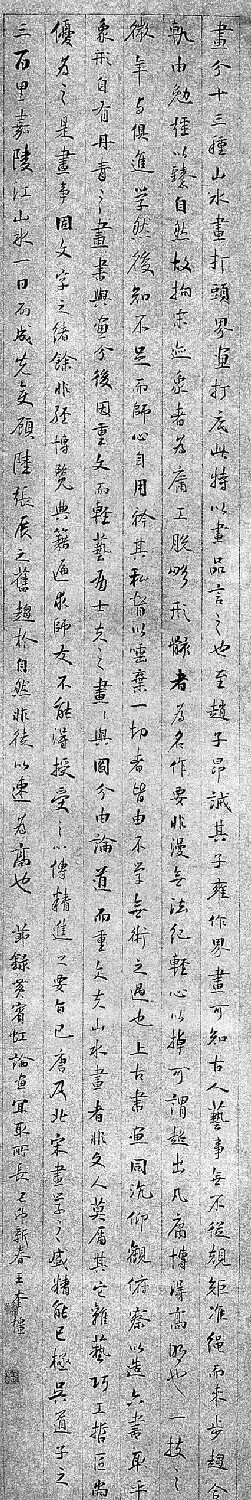 畫分十三種山水畫打頭界畫打底此特以畫品言之也至趙子昂誡其子雍作界畫可知古人藝事無不從規矩準繩而來步趨合
軌由勉徑以臻自然故拘守迹象者為庸工脫略形骸者為名作要非漫無法紀輕心以掉可謂超出凡庸博得高明也一技之
微年與俱進學然後知不足而師心自用矜其私智以唾棄一切者皆由不學無術之過也上古書畫同流仰觀俯察以造六書耳半
象形自有丹青之畫書與畫分後因重文而輕藝為士夫之畫畫與圖分由論道而重文夫山水畫者非文人莫屬其它雜藝巧工哲匠尚
優為之是畫事固文字之緒餘非經博覽典籍遍求師友不能得授受之以傳精進之要旨已唐及北宋畫學之盛精能已極吳道子之
三百里嘉陵江山水一日而成先變顧陸張展之舊趨於自然非徒以速為高也 節錄黃賓虹論畫宜取所長 新春王本